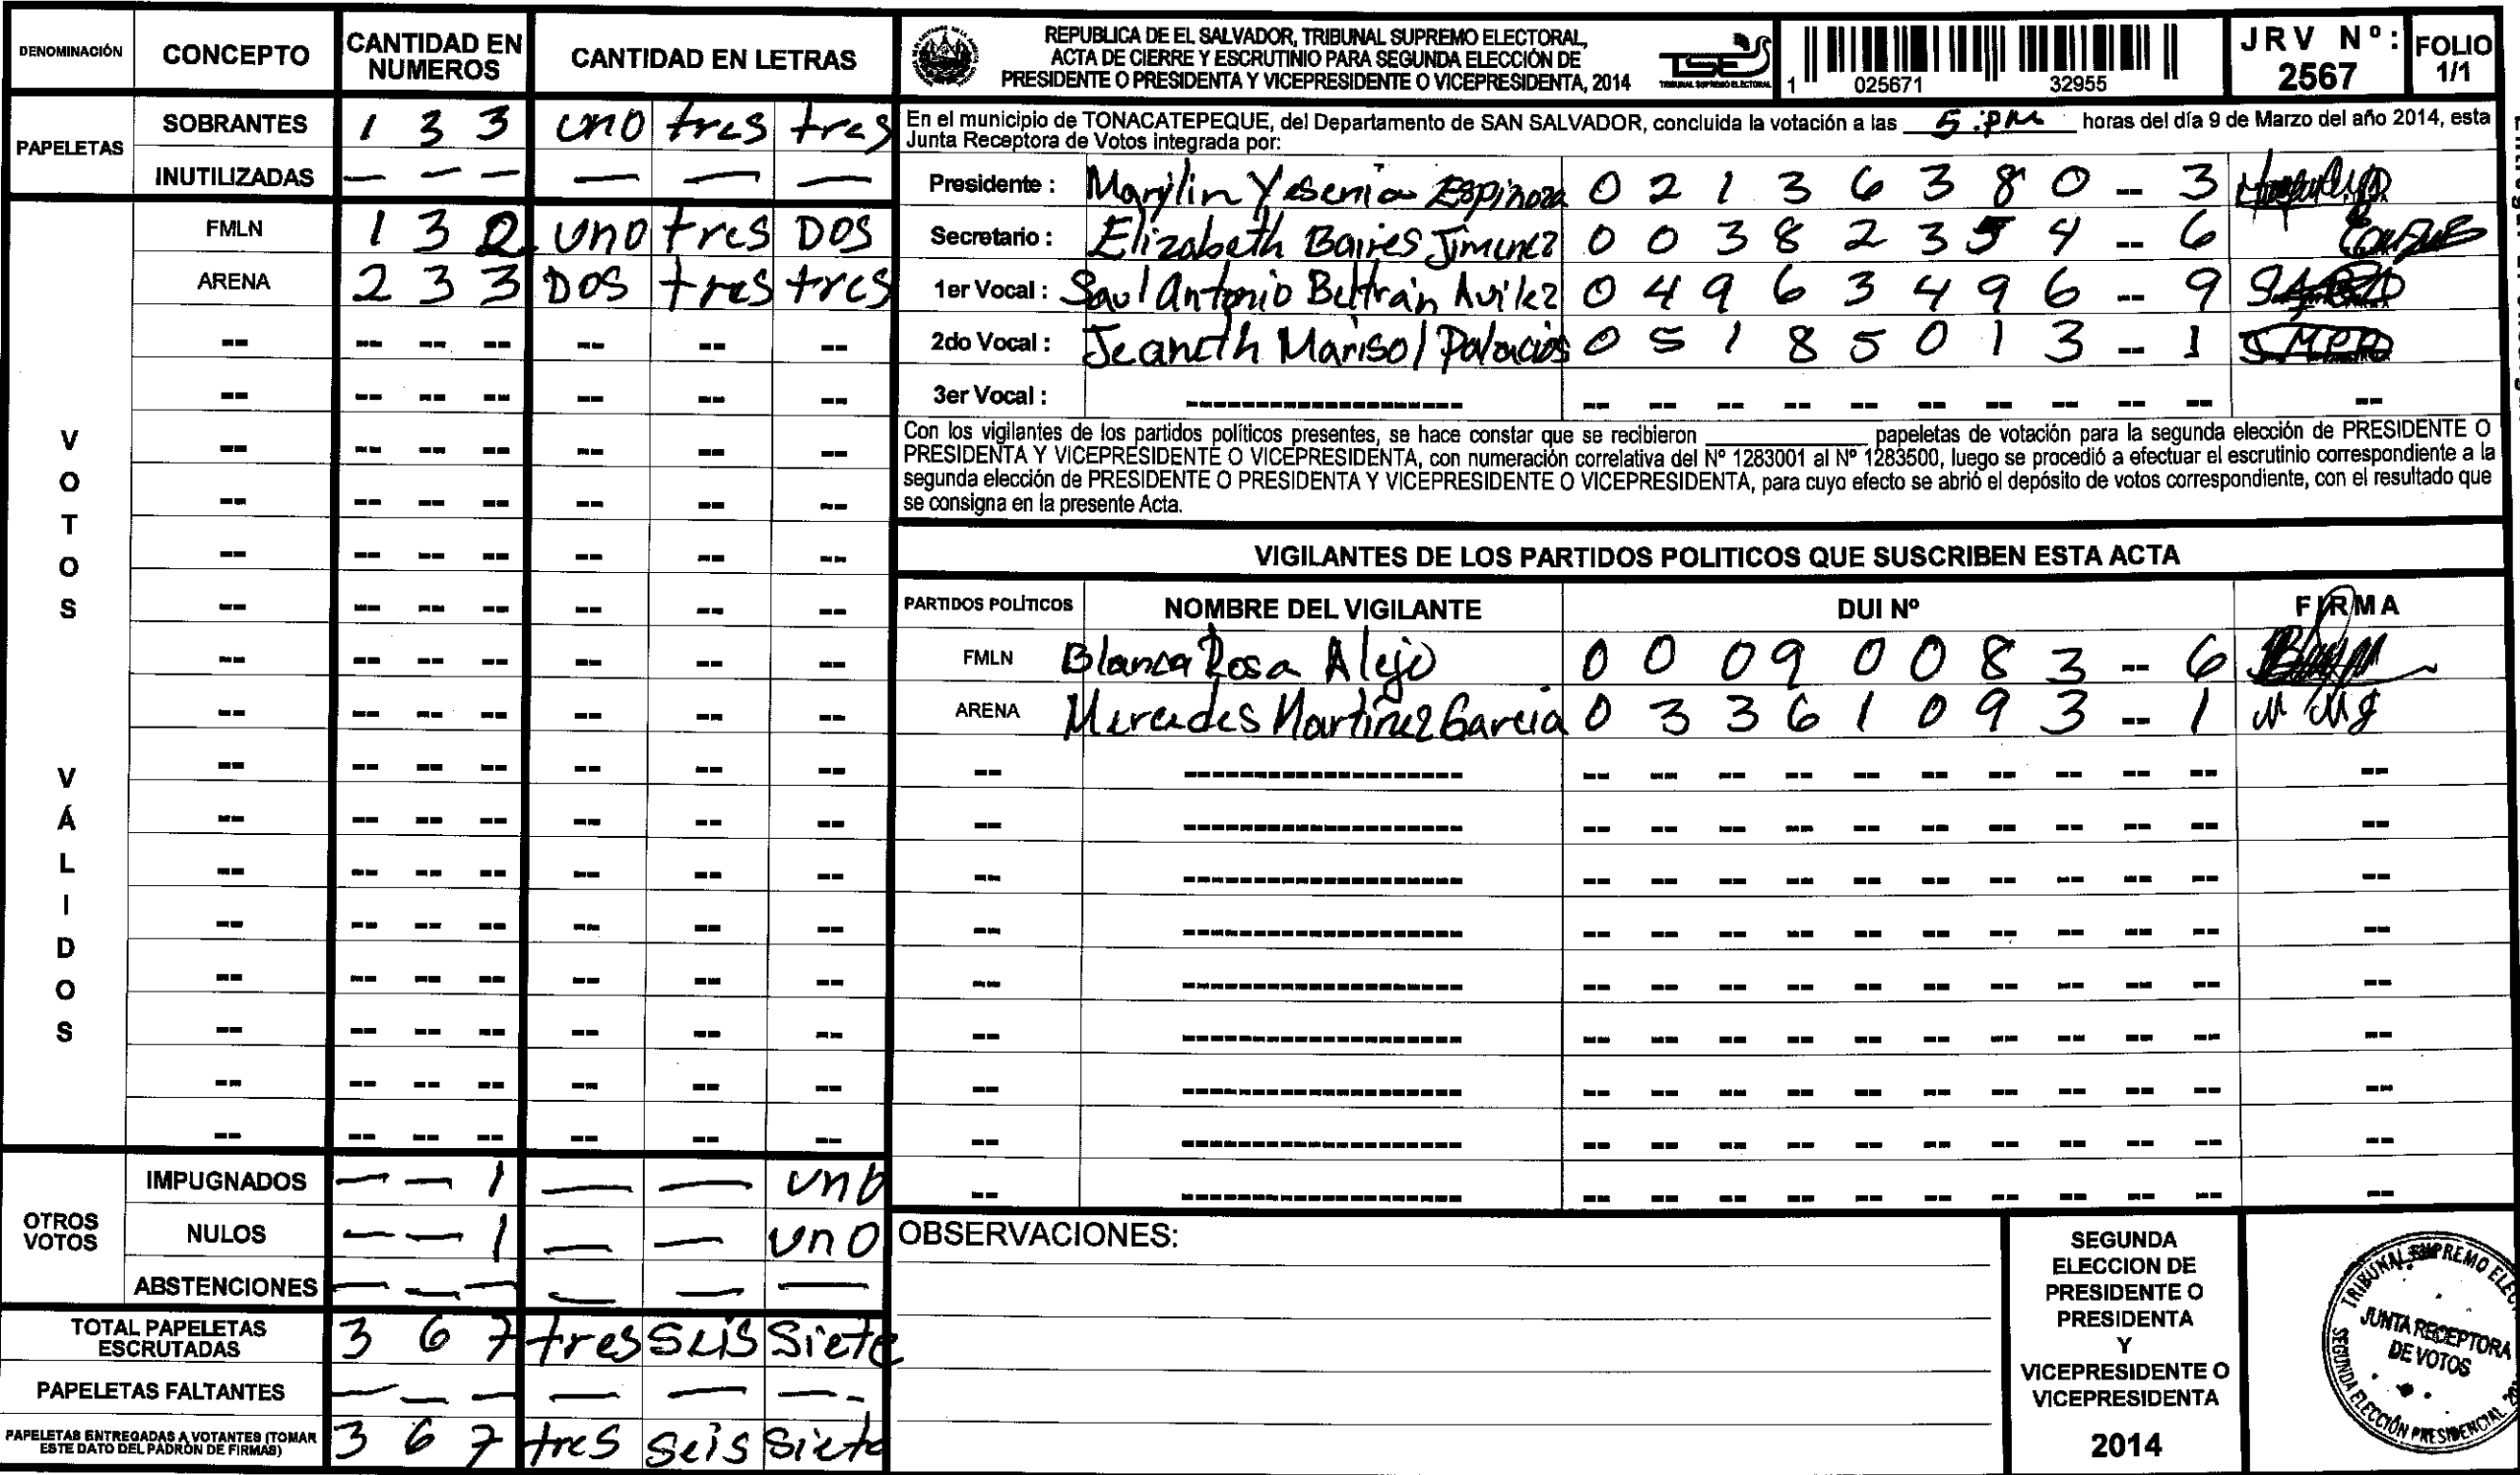 DENOMINACIÓN CONCEPTO CANTIDAD EN NUMEROS CANTIDAD EN LETRAS
PAPELETAS
SOBRANTES 1 3 3 uno tres tres
INUTILIZADAS — — — — — —
VOTOS VÁLIDOS
FMLN 1 3 2 uno tres DOS
ARENA 2 3 3 DOS tres tres
OTROS VOTOS
IMPUGNADOS — — 1 — — uno
NULOS — — 1 — — uno
ABSTENCIONES — — — — — —
TOTAL PAPELETAS ESCRUTADAS 3 6 7 tres seis siete
PAPELETAS FALTANTES — — — — — —
PAPELETAS ENTREGADAS A VOTANTES (TOMAR ESTE DATO DEL PADRÓN DE FIRMAS) 3 6 7 tres seis siete
REPUBLICA DE EL SALVADOR, TRIBUNAL SUPREMO ELECTORAL,
ACTA DE CIERRE Y ESCRUTINIO PARA SEGUNDA ELECCIÓN DE
PRESIDENTE O PRESIDENTA Y VICEPRESIDENTE O VICEPRESIDENTA, 2014
TSE
TRIBUNAL SUPREMO ELECTORAL
1 025671 32955
JRV Nº: 2567
FOLIO 1/1
En el municipio de TONACATEPEQUE, del Departamento de SAN SALVADOR, concluida la votación a las 5:pm horas del día 9 de Marzo del año 2014, esta
Junta Receptora de Votos integrada por:
Presidente : Marylin Yesenia Espinoza 0 2 1 3 6 3 8 0 -- 3
Secretario : Elizabeth Baires Jimenez 0 0 3 8 2 3 5 4 -- 6
1er Vocal : Saul Antonio Beltrán Avilez 0 4 9 6 3 4 9 6 -- 9
2do Vocal : Jeaneth Marisol Palacios 0 5 1 8 5 0 1 3 -- 1
3er Vocal :
Con los vigilantes de los partidos políticos presentes, se hace constar que se recibieron ________ papeletas de votación para la segunda elección de PRESIDENTE O
PRESIDENTA Y VICEPRESIDENTE O VICEPRESIDENTA, con numeración correlativa del Nº 1283001 al Nº 1283500, luego se procedió a efectuar el escrutinio correspondiente a la
segunda elección de PRESIDENTE O PRESIDENTA Y VICEPRESIDENTE O VICEPRESIDENTA, para cuyo efecto se abrió el depósito de votos correspondiente, con el resultado que
se consigna en la presente Acta.
VIGILANTES DE LOS PARTIDOS POLITICOS QUE SUSCRIBEN ESTA ACTA
PARTIDOS POLÍTICOS NOMBRE DEL VIGILANTE DUI Nº FIRMA
FMLN Blanca Rosa Alejo 0 0 0 9 0 0 8 3 -- 6
ARENA Mercedes Martinez Garcia 0 3 3 6 1 0 9 3 -- 1
OBSERVACIONES:
SEGUNDA
ELECCION DE
PRESIDENTE O
PRESIDENTA
Y
VICEPRESIDENTE O
VICEPRESIDENTA
2014
TRIBUNAL SUPREMO
JUNTA RECEPTORA
DE VOTOS
SEGUNDA ELECCIÓN PRESIDENCIAL